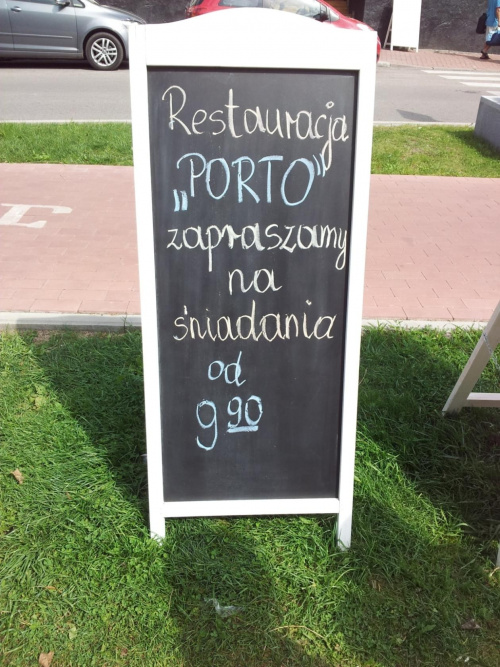 Restauracja
„PORTO”
zapraszamy
na
śniadania
od
9 90